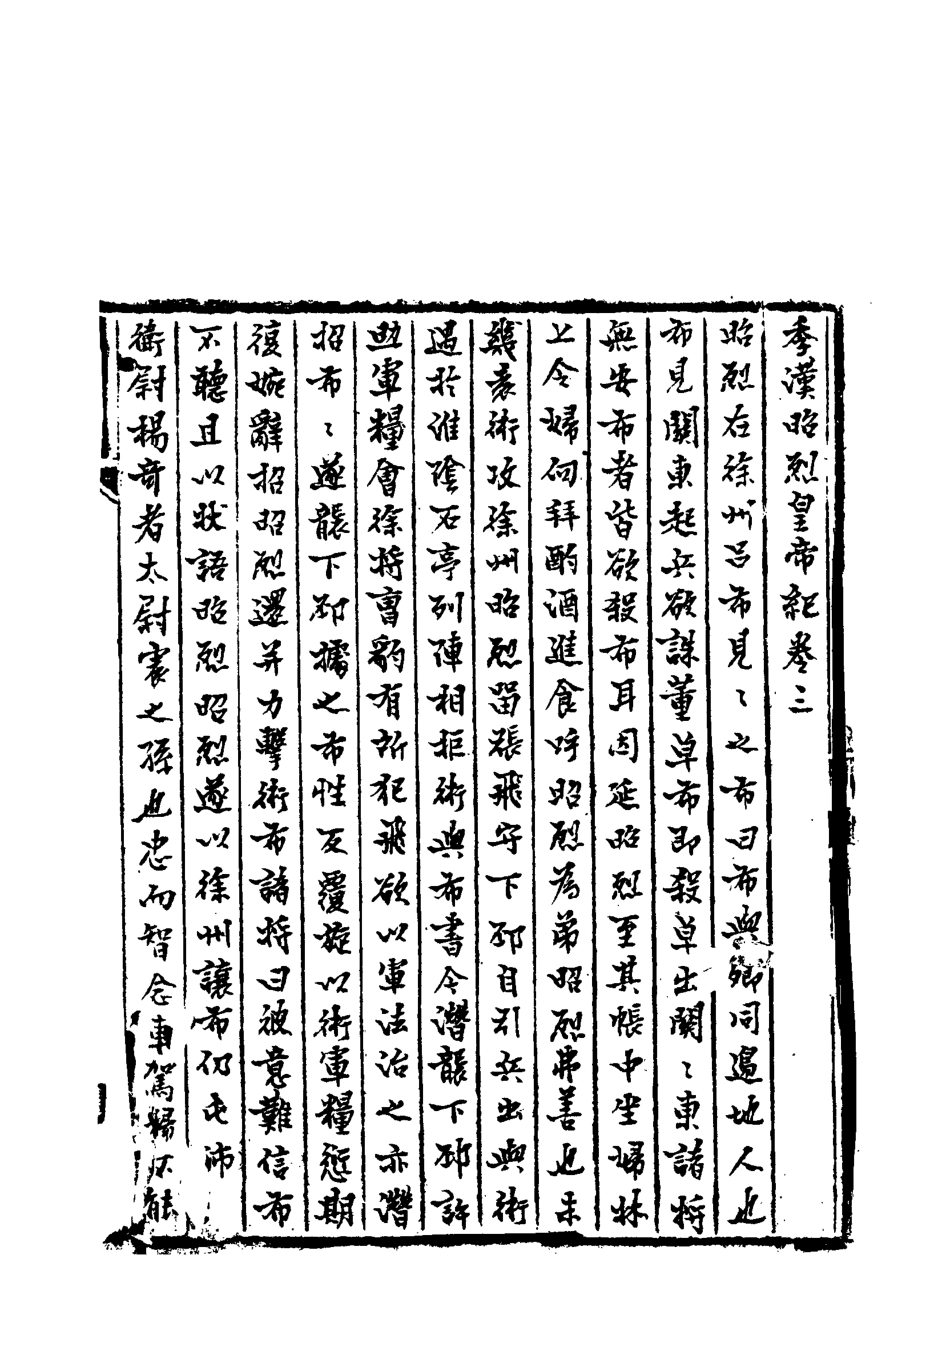 季漢昭烈皇帝紀卷三
昭烈在徐州呂布見〻之布曰布與卿同邊地人也
布見關東起兵欲誅董卓布即殺卓出關〻東諸將
無安布者皆欲殺布耳因延昭烈至其帳中坐婦牀
上令婦向拜酌酒進食呼昭烈為弟昭烈弗善也未
幾袁術攻徐州昭烈留張飛守下邳自引兵出與術
遇於淮陰石亭列陣相拒術與布書令潛襲下邳許
助軍糧會徐將曹豹有所犯飛欲以軍法治之亦潛
招布〻遂襲下邳據之布性反覆旋以術軍糧愆期
復婉辭招昭烈還并力擊術布諸將曰彼意難信布
不聽且以狀語昭烈昭烈遂以徐州讓布仍屯沛
衛尉楊奇者太尉震之孫也忠而智念車駕歸不能